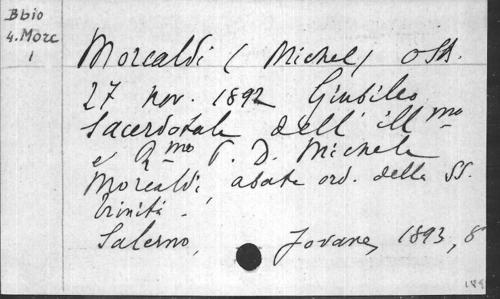 Bbio
4. Morc
1
Morcaldi (Michel) OSB.
27 nov. 1892 Giubileo
Sacerdotale dell'ill mo
e Rmo P. D. Michele
Morcaldi, abate ord. della SS.
Trinità.
Salerno, Jovane, 1893, 8°